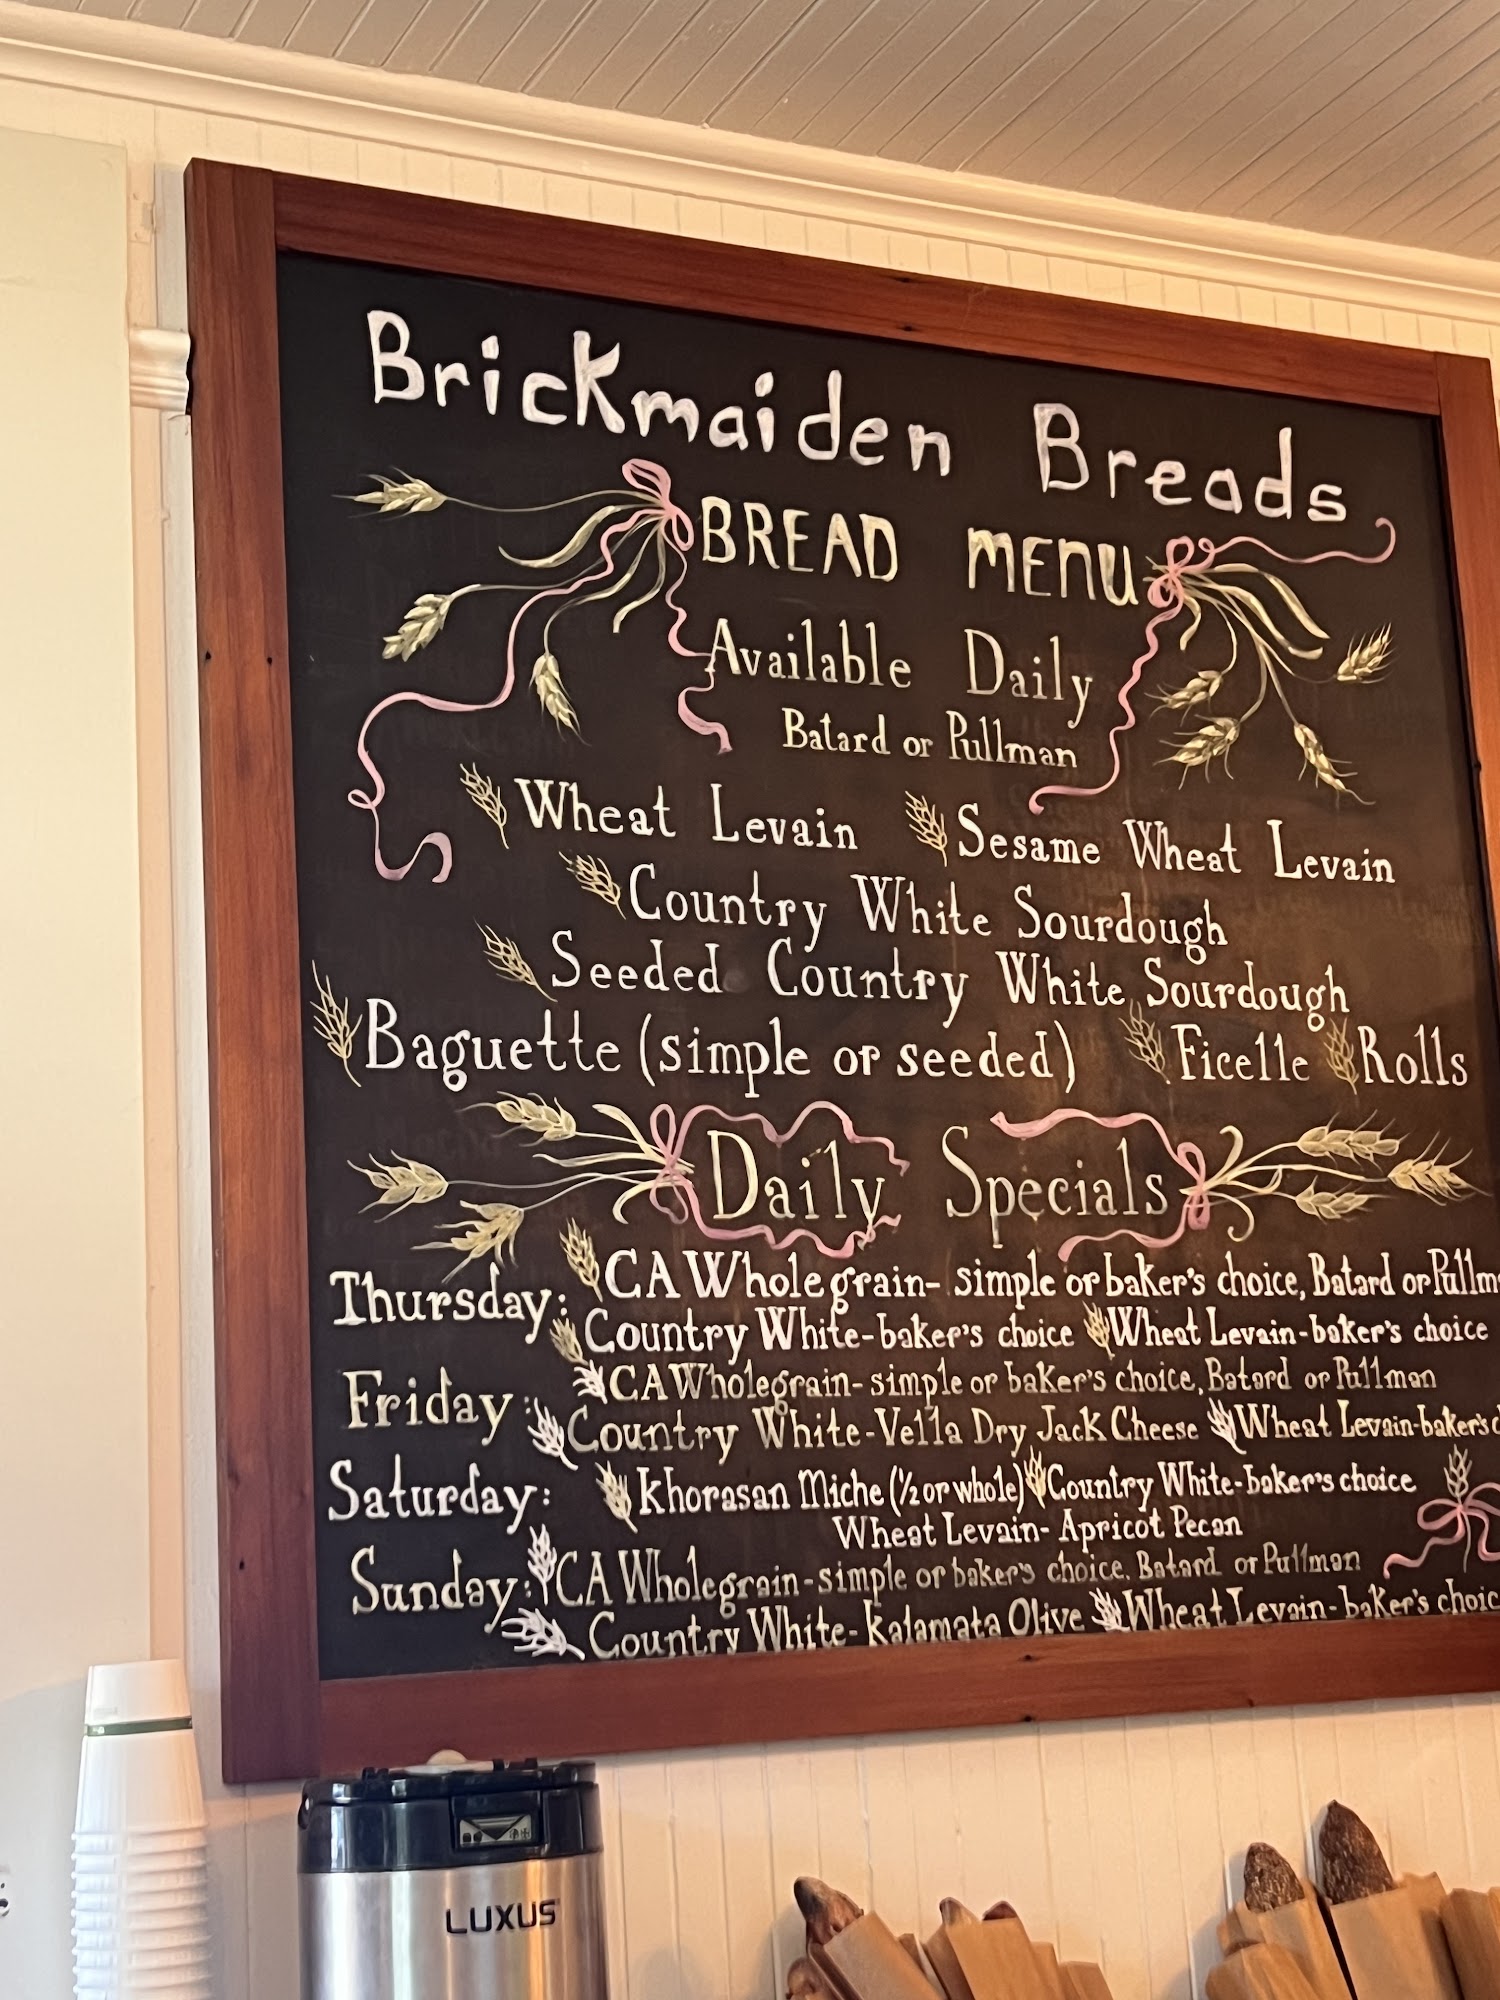 Brickmaiden Breads
BREAD MENU
Available Daily
Batard or Pullman
Wheat Levain Sesame Wheat Levain
Country White Sourdough
Seeded Country White Sourdough
Baguette (simple or seeded) Ficelle Rolls
Daily Specials
Thursday: CA Wholegrain- simple or baker's choice, Batard or Pullm
Country White-baker's choice Wheat Levain-baker's choice
Friday: CA Wholegrain- simple or baker's choice, Batard or Pullman
Country White-Vella Dry Jack Cheese Wheat Levain-baker's c
Saturday: Khorasan Miche (1/2 or whole) Country White-baker's choice
Wheat Levain- Apricot Pecan
Sunday: CA Wholegrain-simple or baker's choice. Batard or Pullman
Country White- Kalamata Olive Wheat Levain-baker's choic
LUXUS